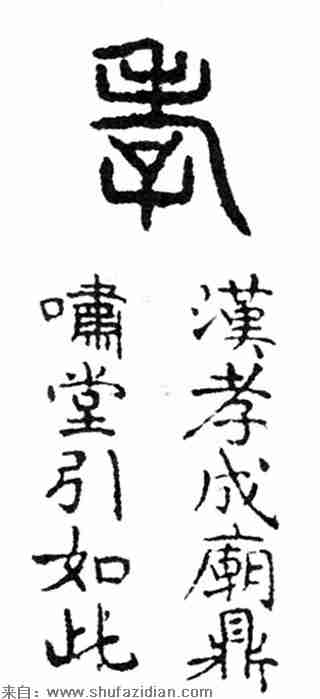 孝
漢孝成廟鼎
嘯堂引如此
来自：www.shufazidian.com